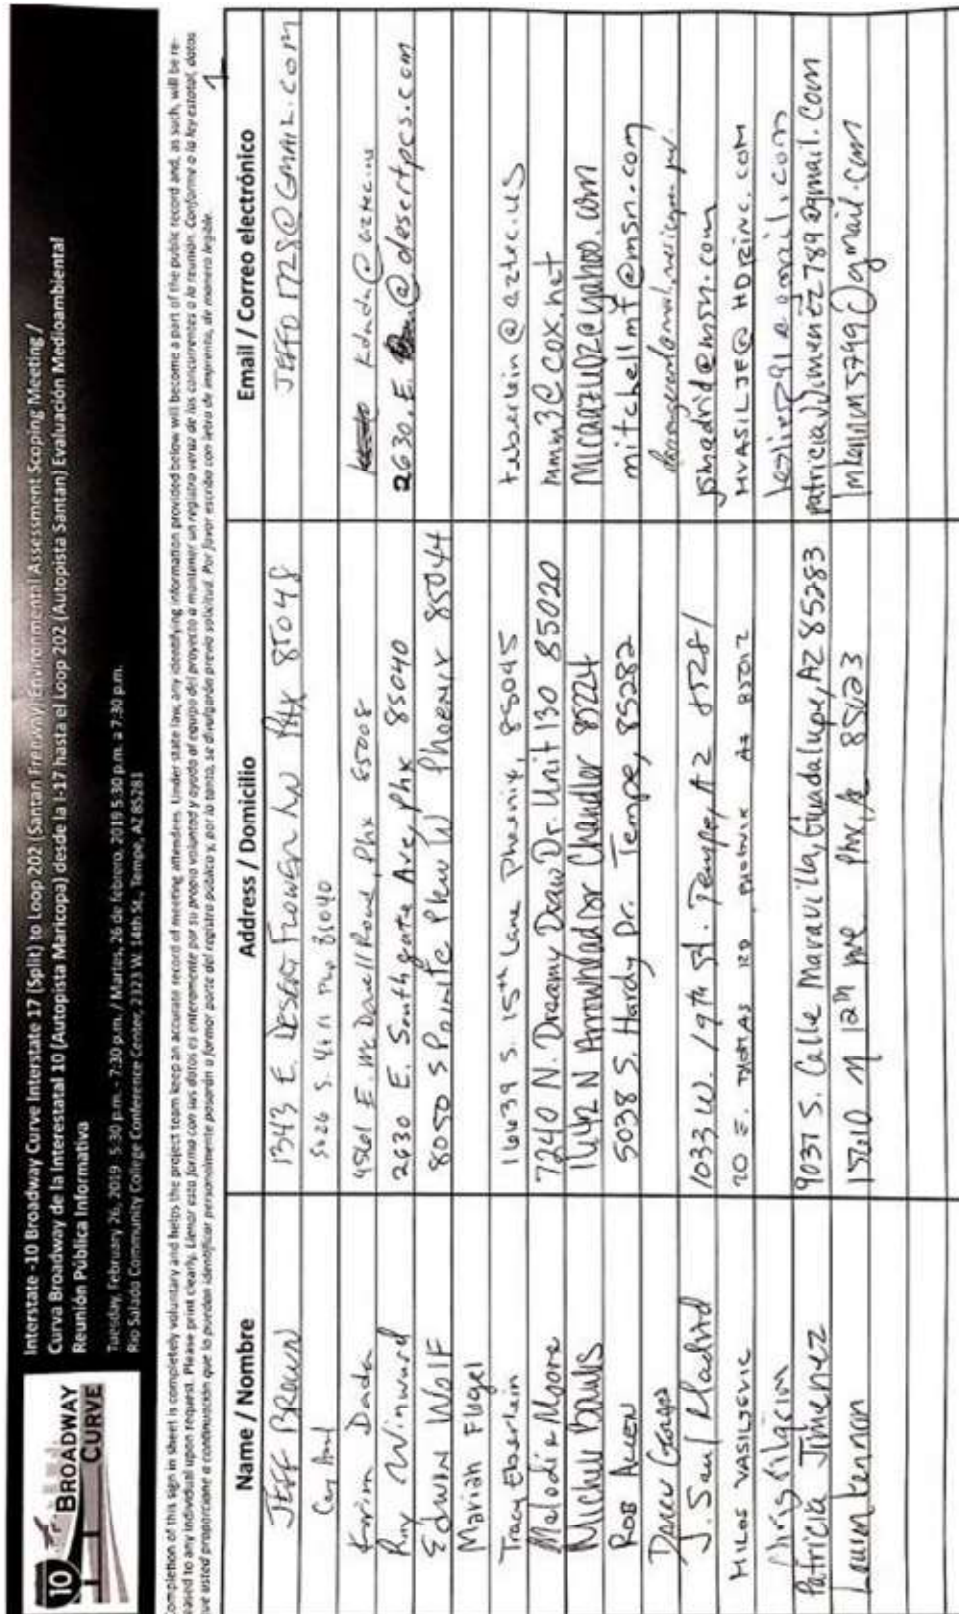 10 BROADWAY CURVE
Interstate -10 Broadway Curve Interstate 17 (Split) to Loop 202 (Santan Freeway) Environmental Assessment Scoping Meeting /
Curva Broadway de la Interestatal 10 (Autopista Maricopa) desde la I-17 hasta el Loop 202 (Autopista Santan) Evaluación Medioambiental
Reunión Pública Informativa
Tuesday, February 26, 2019 5:30 p.m. - 7:30 p.m. / Martes, 26 de febrero, 2019 5:30 p.m. a 7:30 p.m.
Rio Salado Community College Conference Center, 2323 W. 14th St., Tempe, AZ 85281
ompletion of this sign in sheet is completely voluntary and helps the project team keep an accurate record of meeting attendees. Under state law, any identifying information provided below will become a part of the public record and, as such, will be re-
eased to any individual upon request. Please print clearly. Llenar esta forma con sus datos es enteramente por su propia voluntad y ayuda al equipo del proyecto a mantener un registro veraz de los concurrentes a la reunión. Conforme a la ley estatal, datos
ue usted proporcione a continuación que lo puedan identificar personalmente pasarán a formar parte del registro público y, por lo tanto, se divulgarán previa solicitud. Por favor escriba con letra de imprenta, de manera legible.
1
Name / Nombre Address / Domicilio Email / Correo electrónico
JEFF BROWN 1343 E. DESERT FLOWER LN PHX 85048
85040
Dada 4561 E. McDowell Road, Phx 85008 kdada@aztec.us
Roy Winward 2630 E. Southgate Ave, Phx 85040 2630.E. @desertpcs.com
EDWIN WOLF 8050 S POINTE PKWY W PHOENIX 85044
Marian Flugel
Tracy Eberlein 16639 S. 15th Lane Phoenix, 85045 teberlein@aztec.us
Melodie Moore 7240 N. Dreamy Draw Dr. Unit 130 85020 mmm3@cox.net
N Arrowhead Dr Chandler 85224
ROB ALLEN 5038 S. Hardy Dr. Tempe, 85282 mitchellmf@msn.com
J. Saul Madrid 1033 W. 19th St. Tempe, AZ 85281 jsmadrid@msn.com
MILOS VASILJEVIC 20 E. THOMAS PHOENIX AZ 85012 MVASILJE@HDRINC.COM
Patricia Jimenez 9037 S. Calle Maravilla, Guadalupe, AZ 85283 patriciajjimenez789@gmail.com
12th Ave Phx,